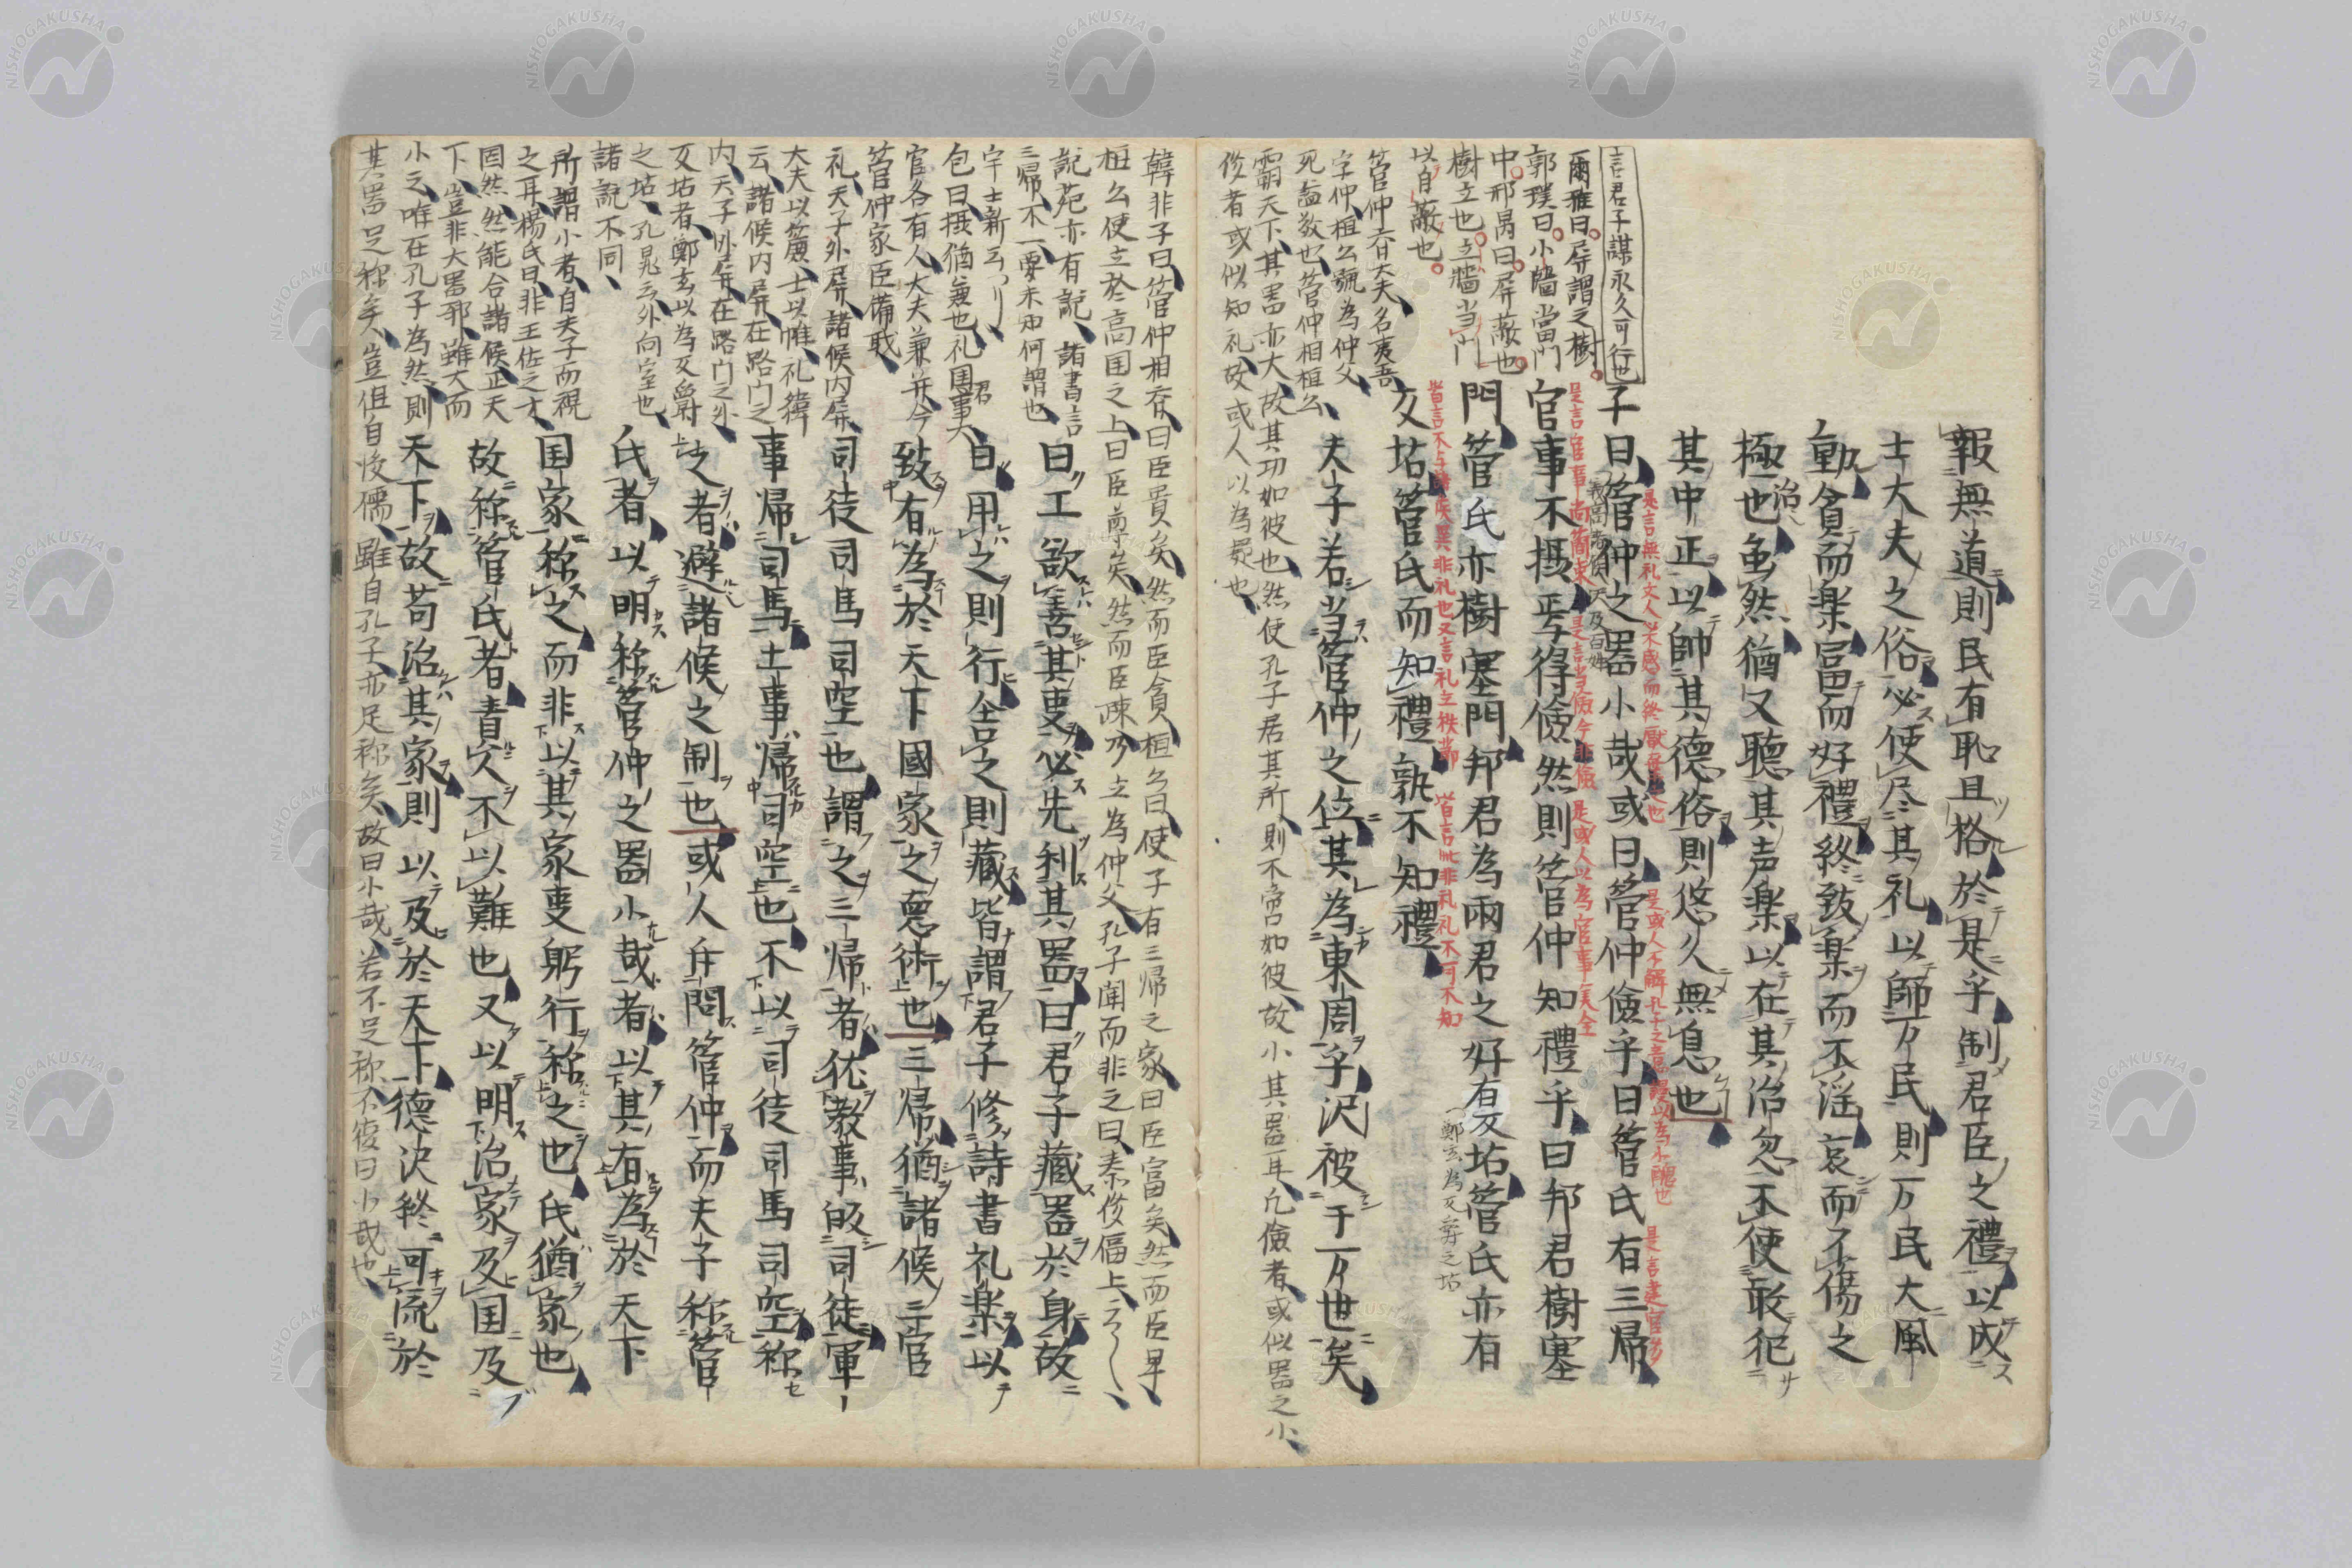 報無道則民有恥且格於是乎制君臣之禮以成
士大夫之俗必使尽其礼以師万民則万民大風
動貪而楽富而好禮終致楽而不淫哀而不傷之
極也治虽然猶又聴其声楽以在其治忽不使敢犯
其中正以帥其德俗則悠久無息也
言君子謀永久可行也
子曰管仲之器小哉或曰管仲儉乎曰管氏有三帰
是言無礼文人
是或人不解孔子之意誤以為不醜也
是言建官多
爾雅曰屏謂之樹
官事不摂焉得儉然則管仲知禮乎曰邦君樹塞
是言官事尚簡
是或人以為官事笑全
郭璞曰小牆當門
中邢昺曰屏蔽也
門管氏亦樹塞門邦君為兩君之好有反坫管氏亦有
樹立也立牆当門
皆言不与諸侯異非礼也又言礼之
皆言非礼礼不可不知
鄭玄為反爵之坫
以自蔽也
反坫管氏而知禮孰不知禮
管仲斉大夫名夷吾
字仲桓公號為仲父
死謚敬也管仲相桓公
夫子若当管仲之位其為東周乎沢被于万世矣
霸天下其器亦大故其功如彼也然使孔子居其所則不啻如彼故小其器耳凡儉者或似器之小
俊者或似知礼故或人以為疑也
韓非子曰管仲相斉曰臣貴矣然而臣貧桓公曰使子有三帰之家曰臣富矣然而臣卑
桓公使立於高国之上曰臣尊矣然而臣疎乃立為仲父孔子聞而非之曰泰侈偪上
説苑亦有説諸書言
曰工欲善其事必先利其器曰君子蔵器於身故
三帰不一要未知何謂也
宇士新云
曰用之則行舎之則蔵皆謂君子修詩書礼楽以
包曰摂猶兼也礼国君事大
官各有人大夫兼并今
致有為於天下國家之悳術也三帰猶諸候三官
管仲家臣備職
礼天子外屏諸候内屏
司徒司馬司空也謂之三帰者依教事皈司徒軍
大夫以簾士以帷礼緯
云諸候内屏在路門之
事帰司馬土事帰司空也不以司徒司馬司空称
内天子外屏在路门之外
反坫者鄭玄以為反爵
之者避諸候之制也或人弁問管仲而夫子称管
之坫孔晁云外向室也
諸説不同
氏者以明称管仲之器小哉者以其有為於天下
所謂小者自夫子而視
之耳楊氏曰非王佐之才
国家称之而非以其家事躬行称之也氏猶家也
固然然能合諸候正天
下豈非大器邪雖大而
故称管氏者責人不以難也又以明治家及国及
小之唯在孔子為然則
天下故苟治其家則以及於天下德決終可流於
其器足称矣豈但自後儒雖自孔子亦足称矣故曰小哉若不足称不復曰小哉也